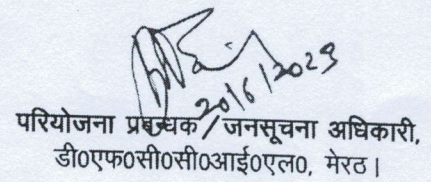 20/6/2023
परियोजना प्रबन्धक / जनसूचना अधिकारी,
डी0एफ0सी0सी0आई0एल0, मेरठ।